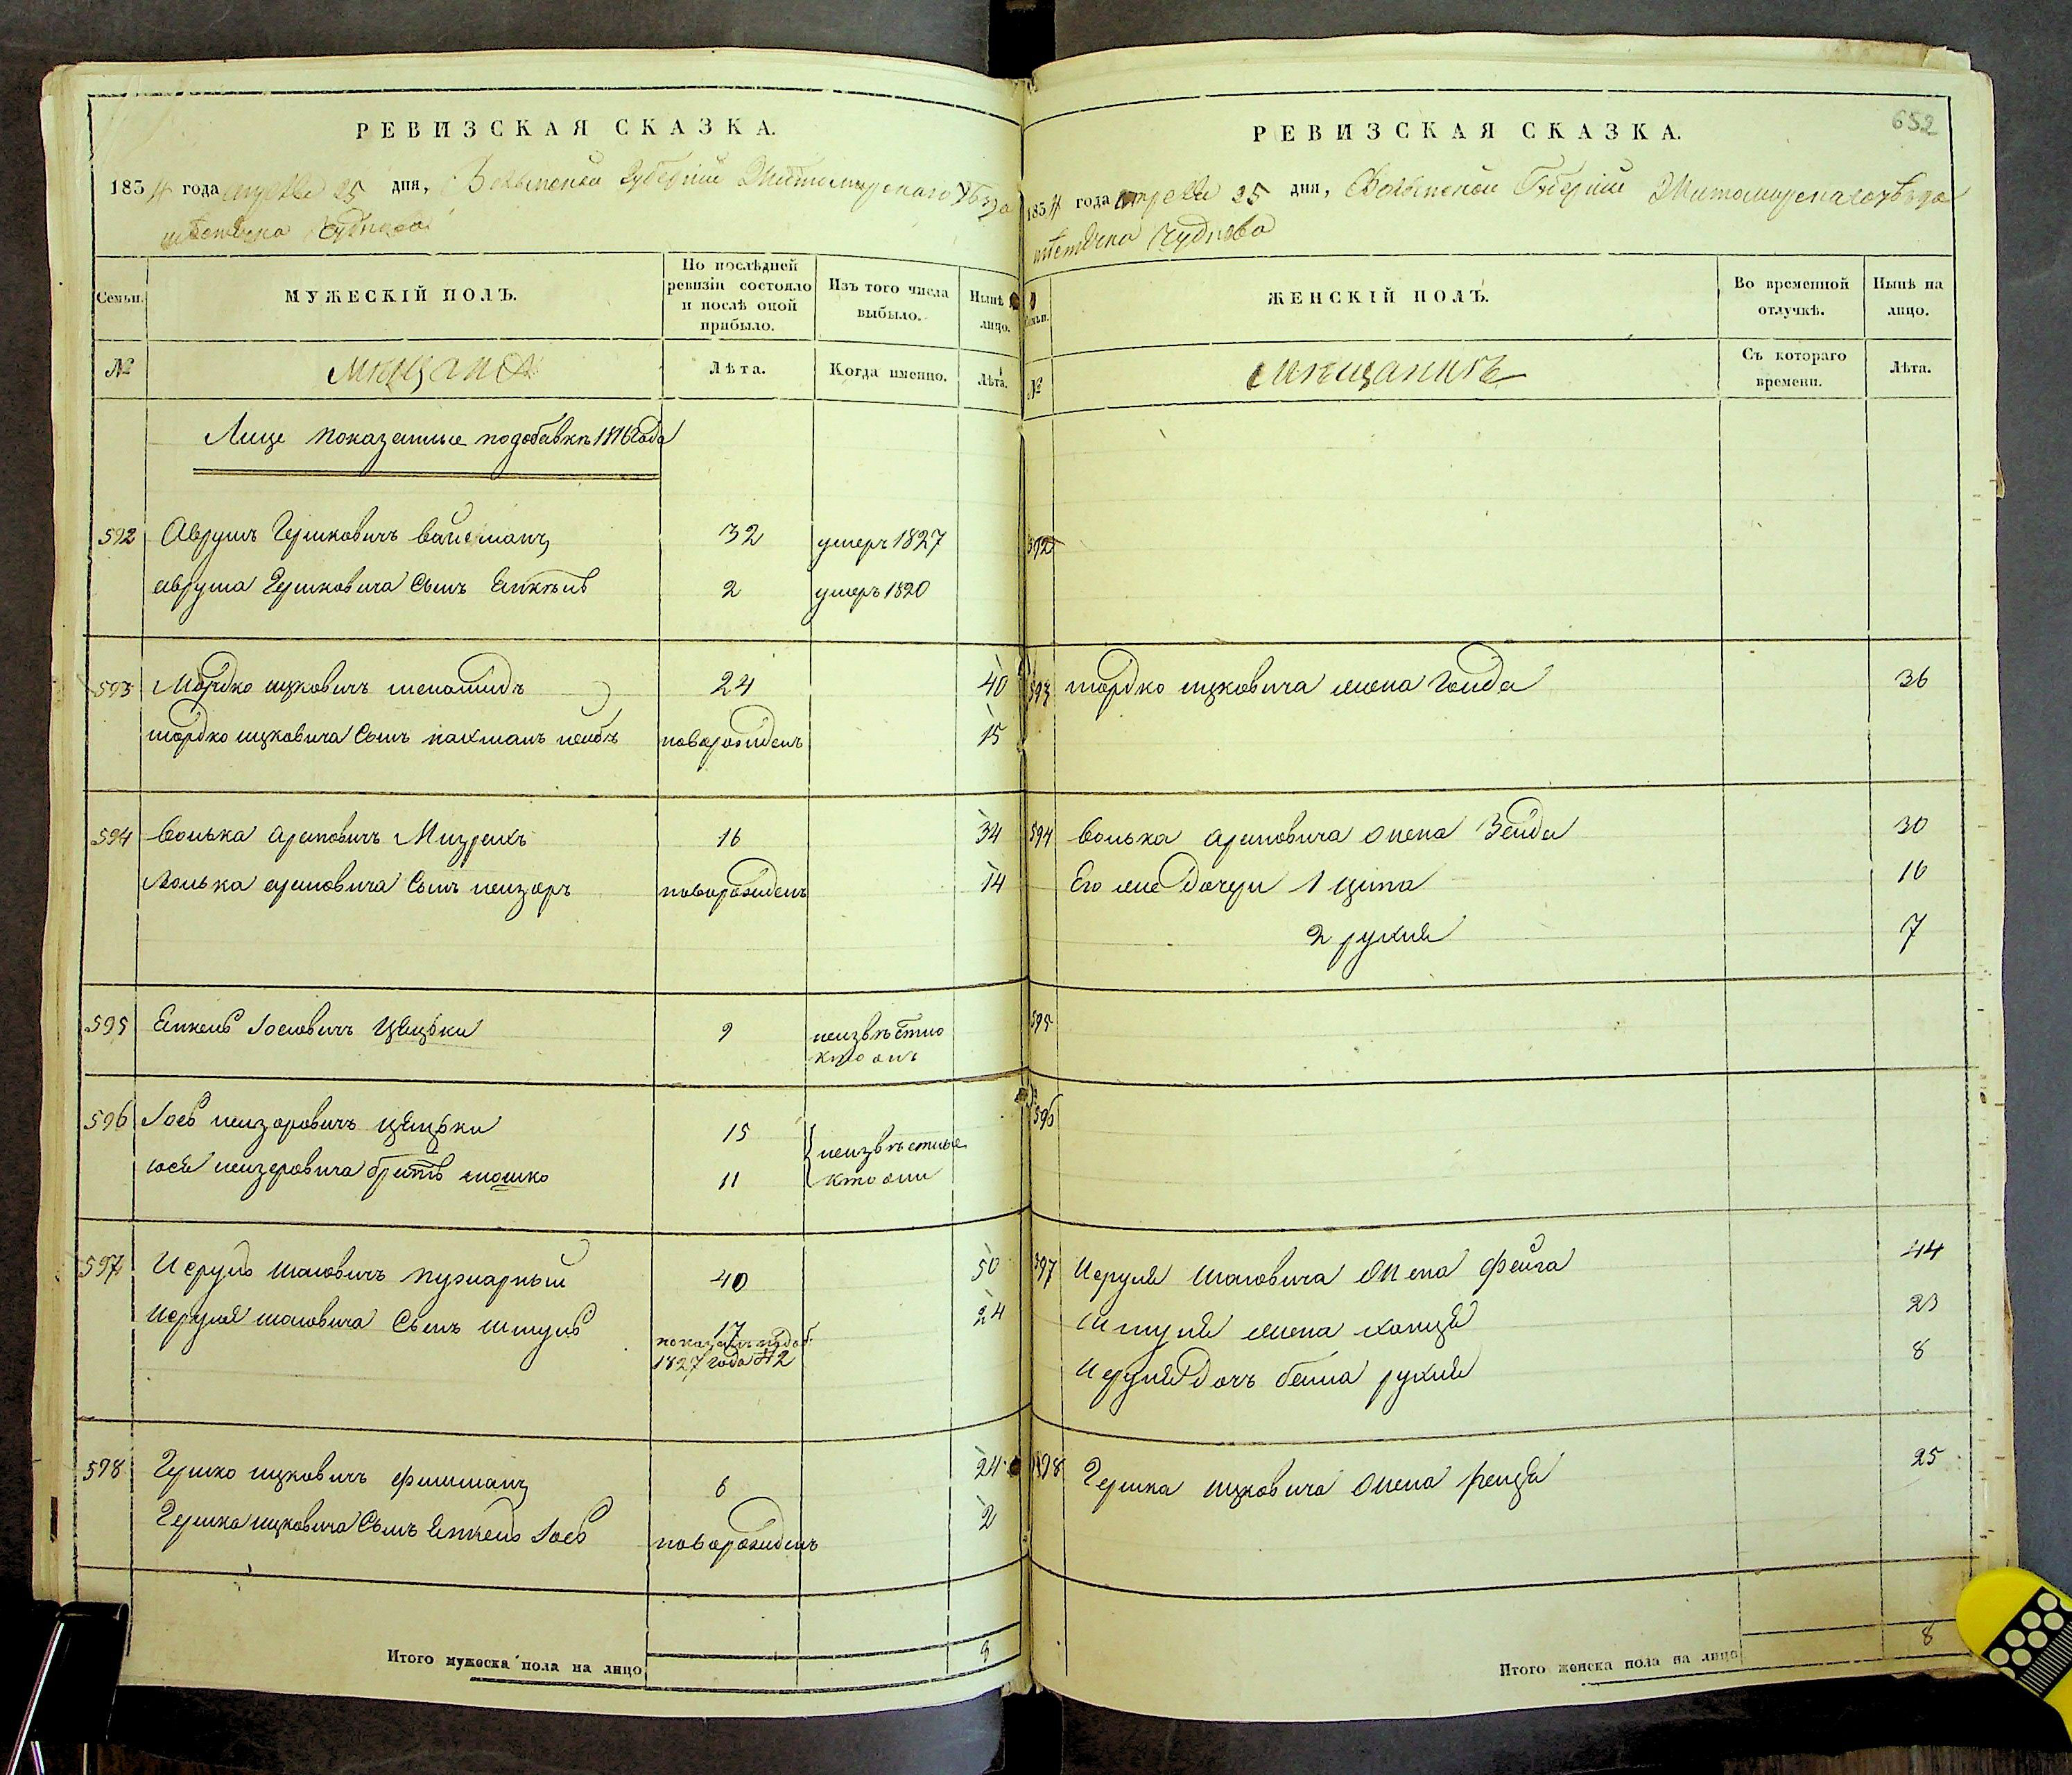 РЕВИЗСКАЯ СКАЗКА.
1834 года апреля 25 дня, Волынской Губерніи Житомирскаго уѣзда
мѣстечка Чуднова
Семьи.
МУЖЕСКІЙ ПОЛЪ.
По послѣдней ревизіи состояло и послѣ оной прибыло.
Изъ того числа выбыло.
Нынѣ лицо.
№
мещане
Лѣта.
Когда именно.
Лѣта.
Лице показанные по добавкѣ 1816 года
592 Аврумъ Гершковичъ Вайсманъ 32 умеръ 1827
Аврума Гершковича Сынъ 2 умеръ 1820
593 Мордко ицковичъ 24 40
мордко ицковича Сынъ нахманъ новорожденъ 15
594 Волька ароновичъ Мизрихъ 16 34
Волька ароновича Сынъ лейзоръ новорожденъ 14
595 Янкель Іосіовичъ 9 неизвѣстно
кто онъ
596 Іось лейзоровичъ 15 неизвѣстные
іося лейзеровича братъ мошко 11 кто они
597 Исруль шаовичъ пузнарный 40 50
Исруля шаовича Сынъ шмуль 17 24
показанъ по доб.
1827 года №2
598 Гершко ицковичъ фишманъ 6 24
Гершка ицковича Сынъ Янкель Іось новорожденъ 2
Итого мужеска пола на лицо 8
652
РЕВИЗСКАЯ СКАЗКА.
1834 года апреля 25 дня, Волынской Губерніи Житомирскаго уѣзда
мѣстечка Чуднова
Семьи.
ЖЕНСКІЙ ПОЛЪ.
Во временной отлучкѣ.
Нынѣ на лицо.
№
мещанинъ
Съ котораго времени.
Лѣта.
592
593 мордко ицковича жена Гоида 36
594 Волька ароновича жена Зейда 30
Его же Дочери 1 ципа 16
2 рухля 7
595
596
597 Исруля шаовича Жена фейга 44
Шмуля жена ханця 23
Исруля дочь бейла рухля 8
598 Гершка ицковича Жена рейзя 25
Итого женска пола на лицо 8